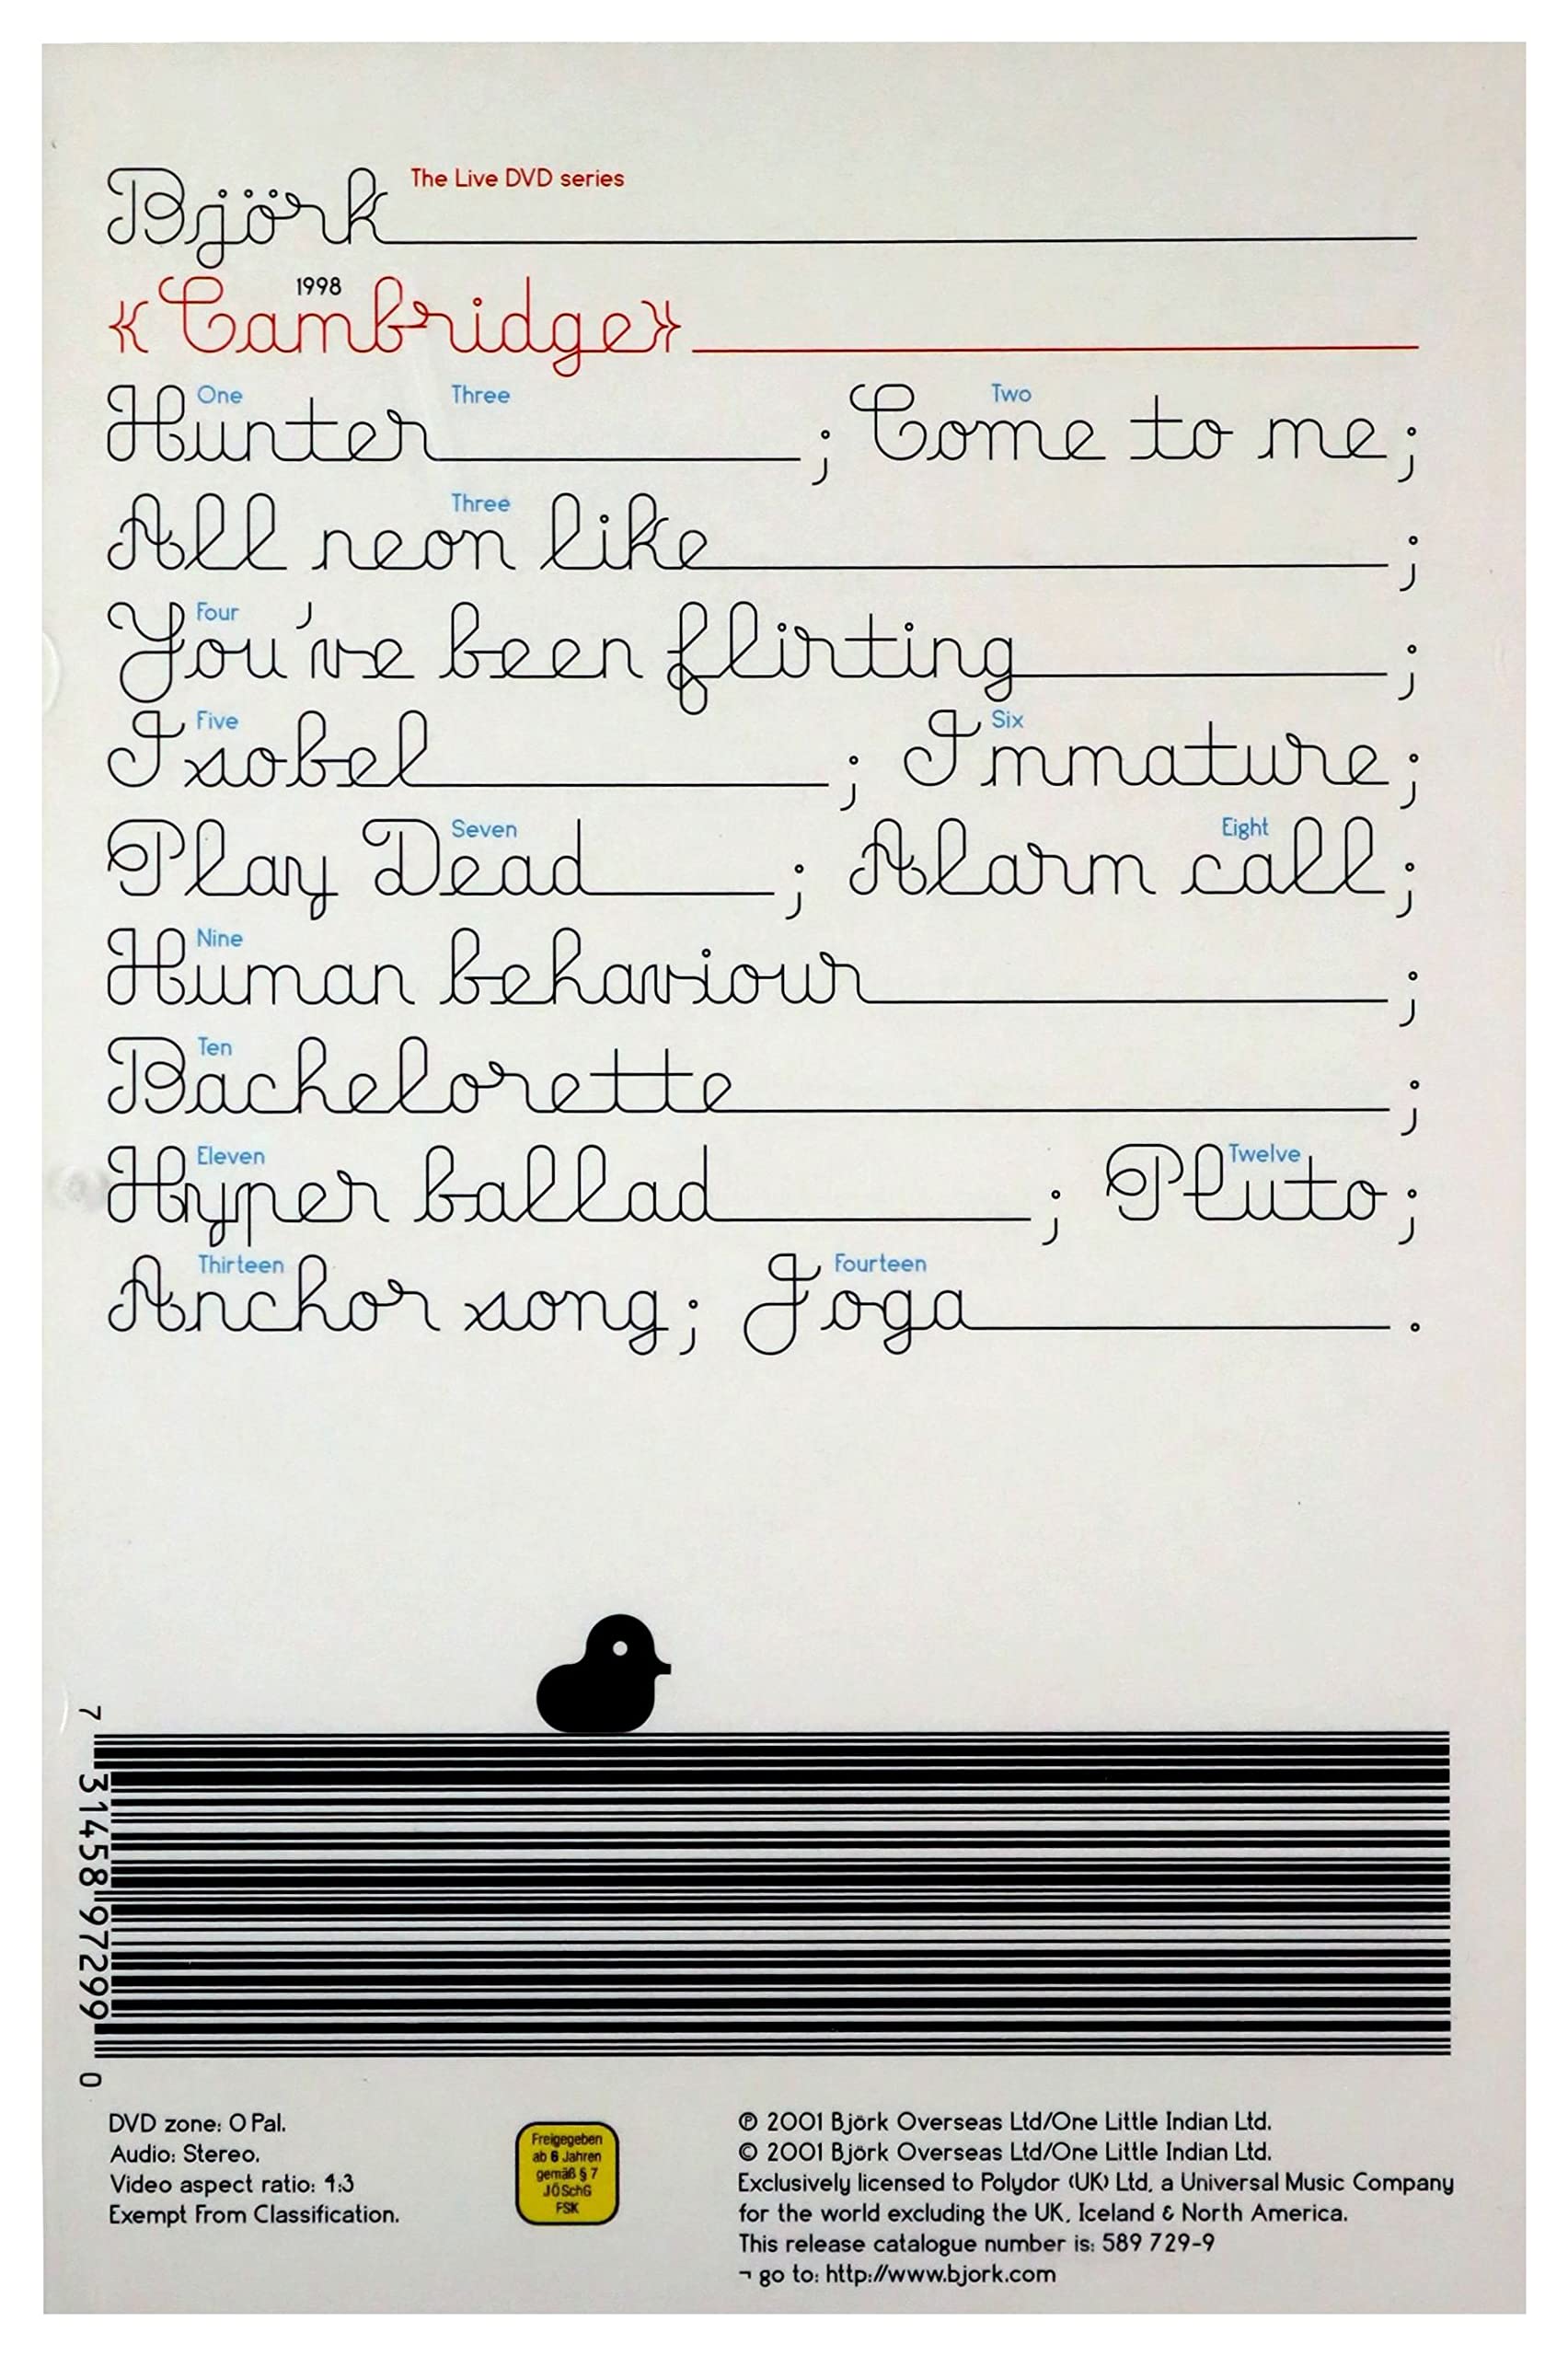 Björk The Live DVD series
«Cambridge» 1998
Hunter One Three ; Come to me Two ;
All neon like Three ;
You've been flirting Four ;
Isobel Five ; Immature Six ;
Play Dead Seven ; Alarm call Eight ;
Human behaviour Nine ;
Bachelorette Ten ;
Hyper ballad Eleven ; Pluto Twelve ;
Anchor song Thirteen ; Joga Fourteen .
7 31458 97299 0
DVD zone: 0 Pal.
Audio: Stereo.
Video aspect ratio: 4:3
Exempt From Classification.
Freigegeben
ab 6 Jahren
gemäß § 7
JÖSchG
FSK
℗ 2001 Björk Overseas Ltd/One Little Indian Ltd.
© 2001 Björk Overseas Ltd/One Little Indian Ltd.
Exclusively licensed to Polydor (UK) Ltd, a Universal Music Company
for the world excluding the UK, Iceland & North America.
This release catalogue number is: 589 729-9
¬ go to: http://www.bjork.com